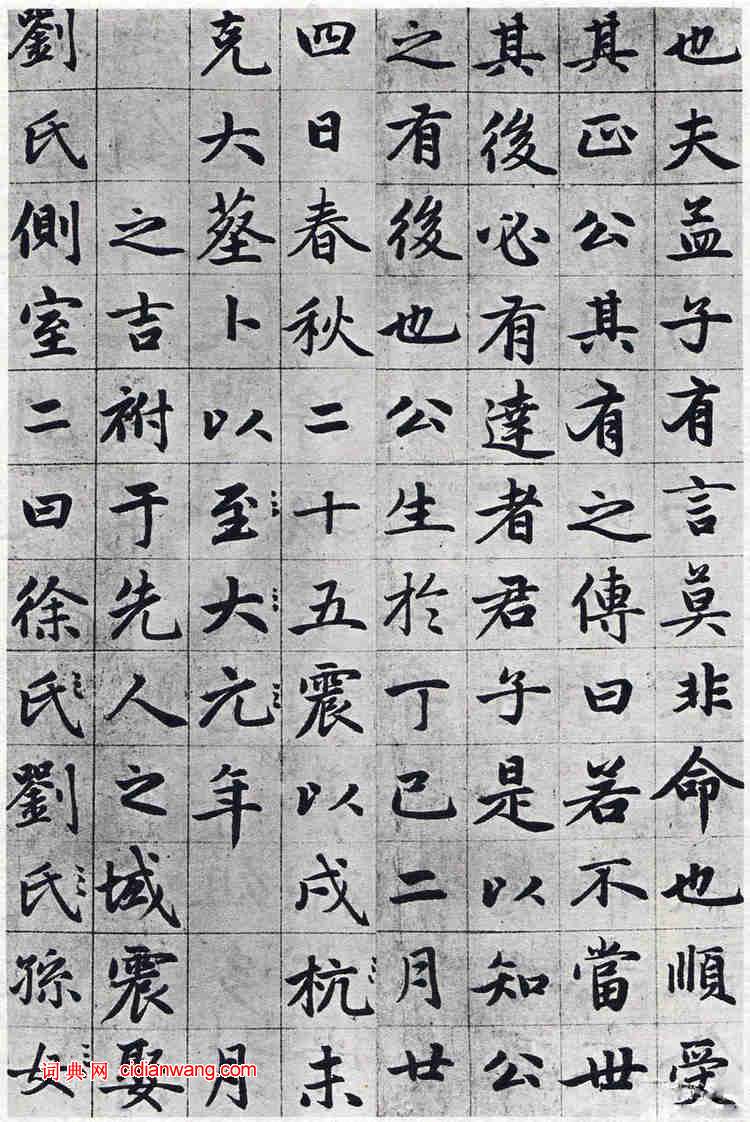 也夫孟子有言莫非命也順受
其正公其有之傳曰若不當世
其後必有達者君子是以知公
之有後也公生於丁巳二月廿
四日春秋二十五震以戍杭未
克大塟卜以至大元年 月
之吉祔于先人之域震娶
劉氏側室二曰徐氏劉氏孫女
词典网 cidianwang.com